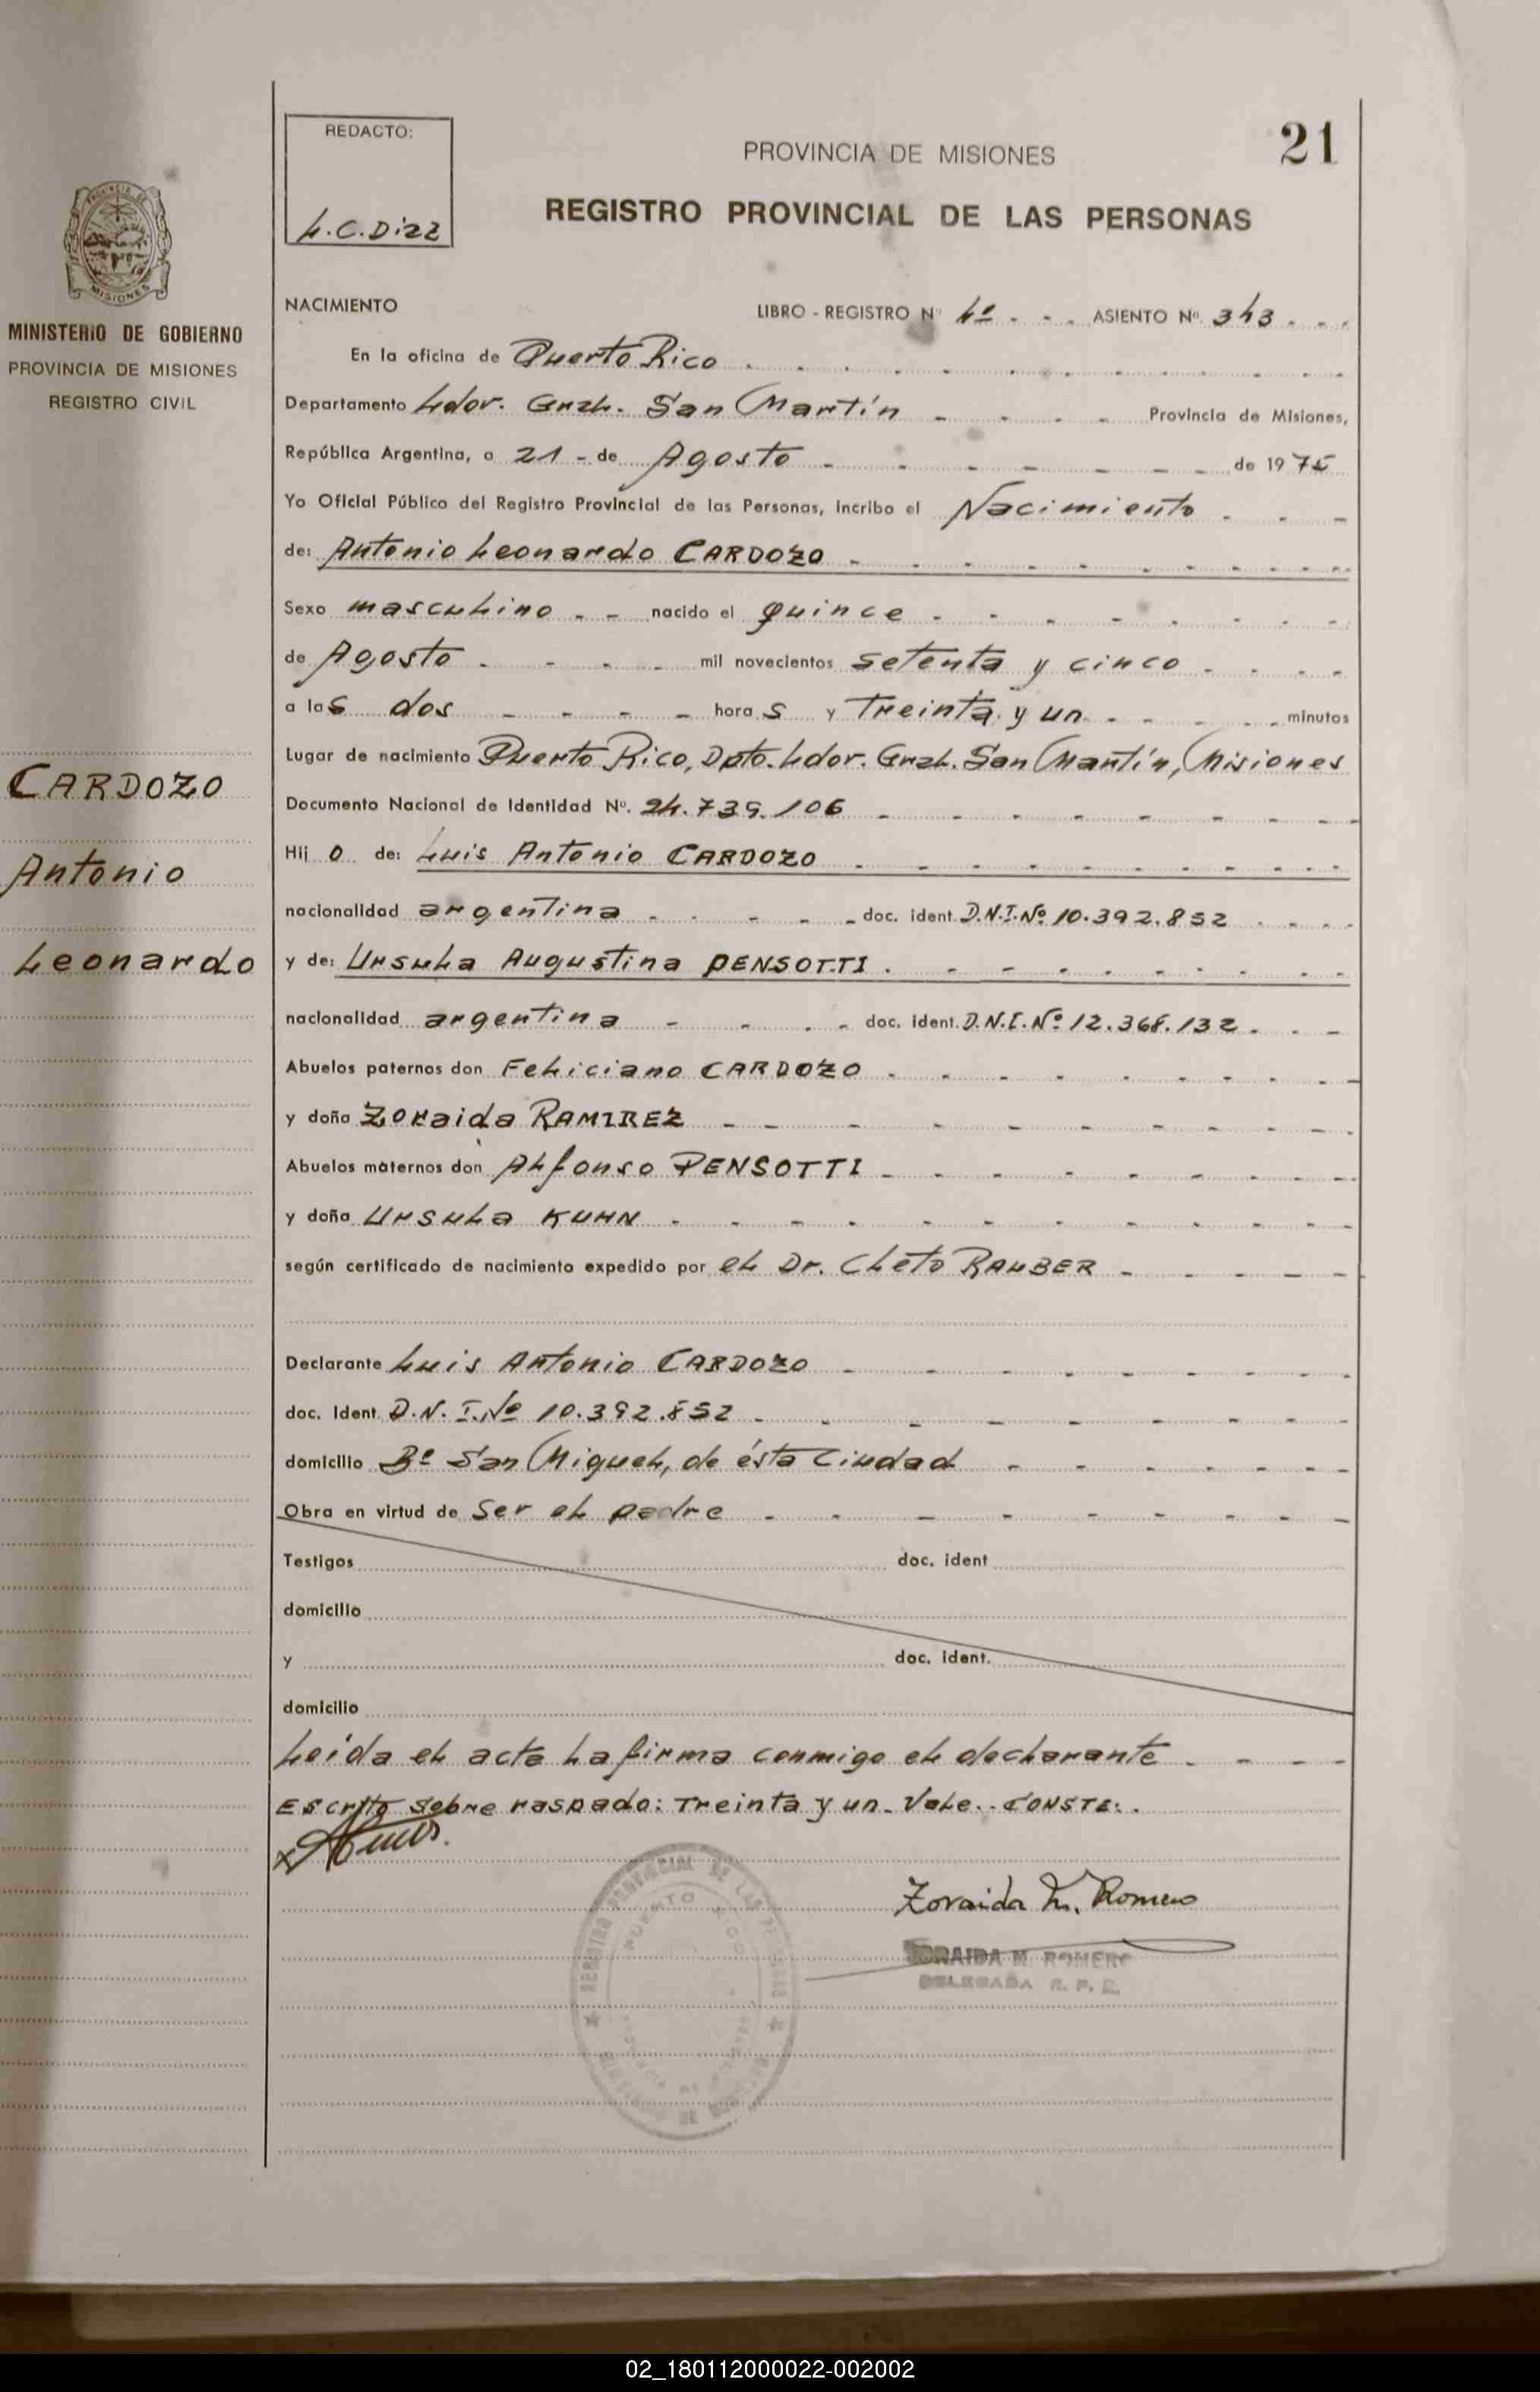 REDACTO:
L.C. Diaz
PROVINCIA DE MISIONES
21
REGISTRO PROVINCIAL DE LAS PERSONAS
MISIONES
MINISTERIO DE GOBIERNO
PROVINCIA DE MISIONES
REGISTRO CIVIL
CARDOZO
Antonio
Leonardo
NACIMIENTO
LIBRO - REGISTRO Nº 4º - - - ASIENTO Nº 343 - - -
En la oficina de Puerto Rico
Departamento Ldor. Gral. San Martín - Provincia de Misiones,
República Argentina, a 21 - de Agosto - de 1975
Yo Oficial Público del Registro Provincial de las Personas, Incribo el Nacimiento
de: Antonio Leonardo CARDOZO
Sexo masculino - - nacido el quince
de Agosto - mil novecientos setenta y cinco
a las dos - hora s y Treinta y un - minutos
Lugar de nacimiento Puerto Rico, Dpto. Ldor. Gral. San Martín, Misiones
Documento Nacional de Identidad Nº. 24.739.106
Hij o de: Luis Antonio CARDOZO
nacionalidad argentina - doc. ident. D.N.I. Nº 10.392.852
y de: Ursula Augustina PENSOTTI
nacionalidad argentina - doc. ident. D.N.I. Nº 12.368.132
Abuelos paternos don Feliciano CARDOZO
y doña Zoraida RAMIREZ
Abuelos maternos don Alfonso PENSOTTI
y doña Ursula KUHN
según certificado de nacimiento expedido por el Dr. Cleto RAUBER
Declarante Luis Antonio CARDOZO
doc. Ident. D.N.I. Nº 10.392.852
domicilio Bº San Miguel, de ésta Ciudad
Obra en virtud de Ser el padre
Testigos doc. ident
domicilio
y doc. ident.
domicilio
Leída el acta la firma conmigo el declarante
Escrito sobre raspado: Treinta y un. Vale. - CONSTE.
REGISTRO PROVINCIAL DE LAS PERSONAS
PUERTO RICO
Zoraida M. Romero
ZORAIDA M. ROMERO
DELEGADA R. P. P.
02_180112000022-002002